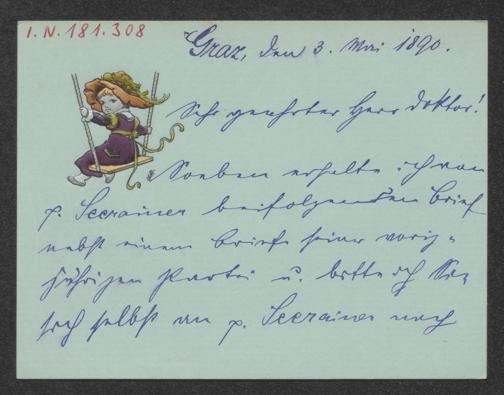 I.N. 181.308
Graz, den 3. Mai 1890.
Sehr geehrter Herr Doktor!
Soeben erhalte ich von
p. Seerainer beifolgenden Brief
nebst einem Briefe seiner vorig-
jährigen Partei u. bitte ich Sie,
sich selbst an p. Seerainer nach